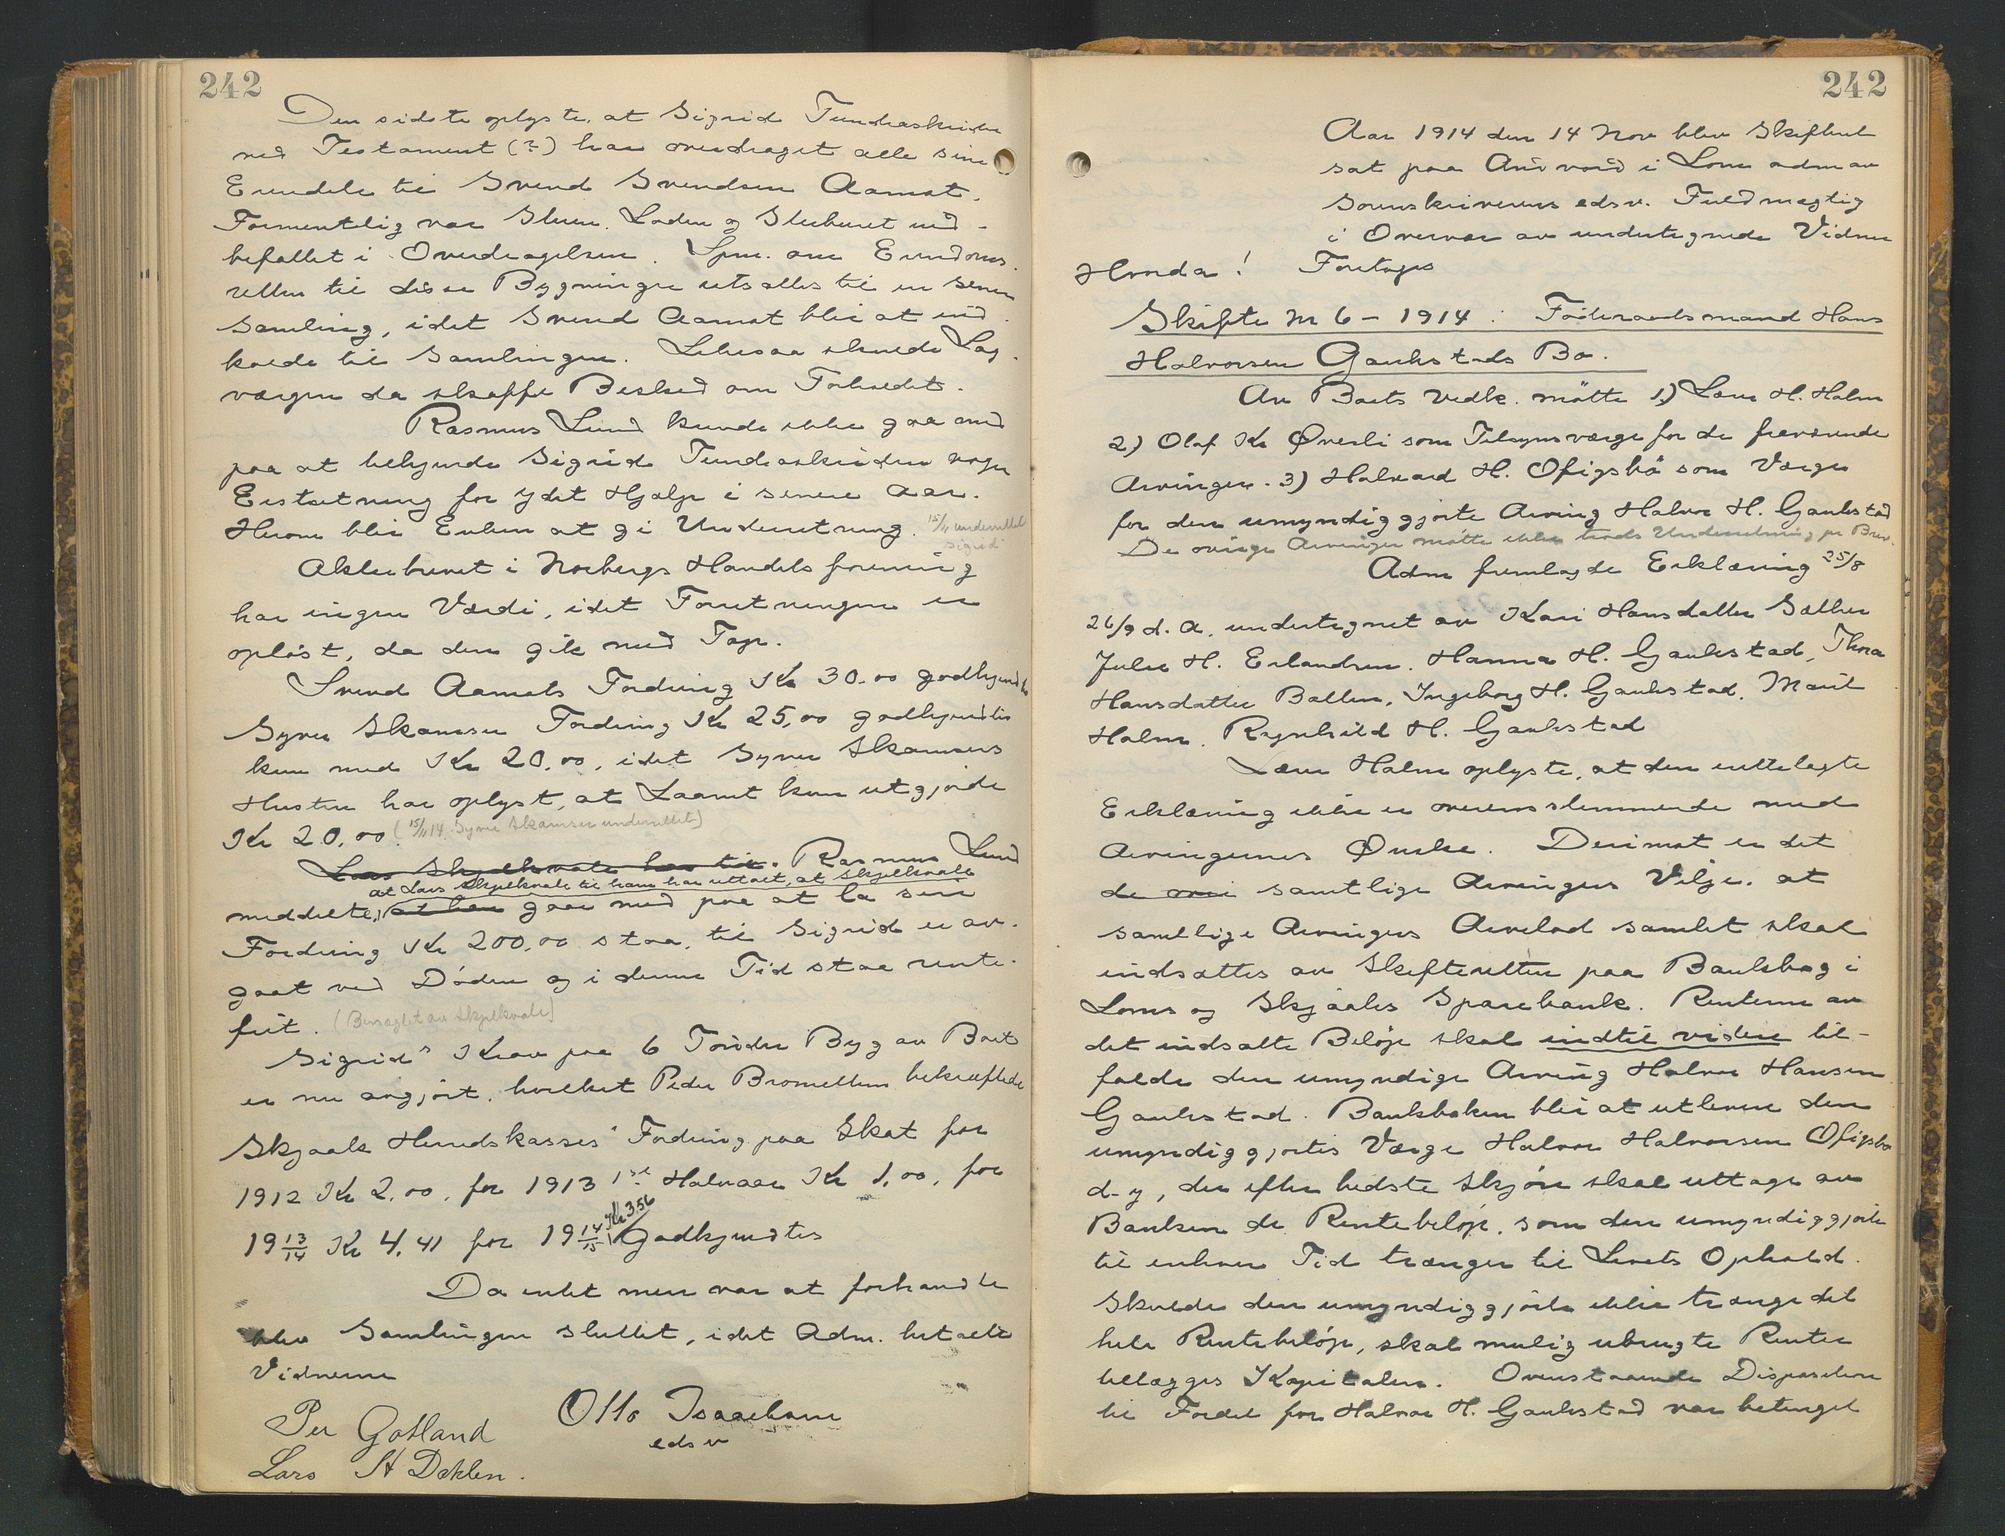 242
Den sidste oplyste, at Sigrid Tundraskriden
ved Testament (?) har overdraget alle sine
Eiendele til Svend Svendsen Aamot.
Formentlig var Stuen, Laden og Stolburet ind-
befattet i Overdragelsen. Spm. om Eiendoms-
retten til disse Bygninger utsattes til en senere
Samling, idet Svend Aamot blir at ind-
kalde til Samlingen. Likesaa skulde Lag-
værgen da skaffe Besked om Forholdet.
Rasmus Lund kunde ikke gaa med
paa at tilkjende Sigrid nogen
Erstatning for ydet Hjælp i senere Aar.
Herom blir Enken at gi Underretning. 15/11 underrettet
Sigrid
Aktiebrevet i Norbergs Handelsforening
har ingen Værdi, idet Forretningen er
opløst, da den gik med Tap.
Svend Aamots Fordring Kr 30.00 godkjendtes
Syver Skamsar Fordring Kr 25,00 godkjendtes
kun med Kr 20,00, idet Syver Skamsars
Hustru har oplyst, at Laanet kun utgjorde
Kr 20,00 (15/11 14. Syver Skamsar underrettet)
Lars Skjelkvale har til. Rasmus Lund
at Lars Skjelkvale til ham har uttalt, at Skjelkvale
meddelte, at han gaar med paa at la sin
Fordring Kr 200,00 staa, til Sigrid er av-
gaat ved Døden og i denne Tid staa rente-
frit. (Benegtet av Skjelkvale)
Sigrids Krav paa 6 Tønder Byg av Boet
er nu avgjort, hvilket Peder Bromellem bekræftede
Skjaak Herredskasses Fordring paa Skat for
1912 Kr 2,00, for 1913 1ste Halvaar Kr 1,00, for
19 13/14 Kr 4,41 for 19 14/15 Kr 3.56 Godkjendtes
Da intet mere var at forhandle
blev Samlingen sluttet, idet Adm. betalte
Vidnerne
Per Gotland Otto Isaachsen
edsv
Lars St Dahlen.
242
Aar 1914 den 14 Nov blev Skifteret
sat paa Andvord i Lom adm av
Sorenskriverens edsv. Fuldmægtig
i Overvær av undertegnede Vidner
Hvorda! Foretages
Skifte No 6 - 1914: Føderaadsmand Hans
Halvorsen Gaukstads Bo.
Av Boets Vedk. møtte 1) Lars H. Holm
2) Olaf Kr Øverli som Tilsynsværge for de fraværende
Arvinger. 3) Halvard H. Ofigsbø som Værge
for den umyndiggjorte Arving Halvor H. Gaukstad
De øvrige Arvinger møtte ikke trods Underretning pr Brev.
Adm fremlagde Erklæring 25/8
26/9 d. A. undertegnet av Kari Hansdatter Sæther
Julie H. Erlandsen. Hanna H. Gaukstad, Thora
Hansdatter Ballen, Ingeborg H. Gaukstad, Marit
Holm. Rynhild H. Gaukstad
Lars Holm oplyste, at den indtelagte
Erklæring ikke er overensstemmende med
Arvingernes Ønske. Derimot er det
de øvri samtlige Arvingers Vilje, at
samtlige Arvingers Arvelod samlet skal
indsættes av Skifteretten paa Bankbog i
Loms og Skjaaks Sparebank. Renterne av
det indsatte Beløp skal indtil videre til-
falde den umyndige Arving Halvor Hansen
Gaukstad. Bankboken blir at utlevere den
umyndiggjortes Værge Halvor Halvorsen Ofigsbø
d-y, der efter bedste Skjøn skal uttage av
Banken de Rentebeløp, som den umyndiggjorte
til enhver Tid trænger til Livets Ophold.
Skulde den umyndiggjorte ikke trænge det
hele Rentebeløp, skal mulig ubrugte Renter
tillægges Kapitalen. Ovenstaaende Disposition
til Fordel for Halvor H. Gaukstad var betinget